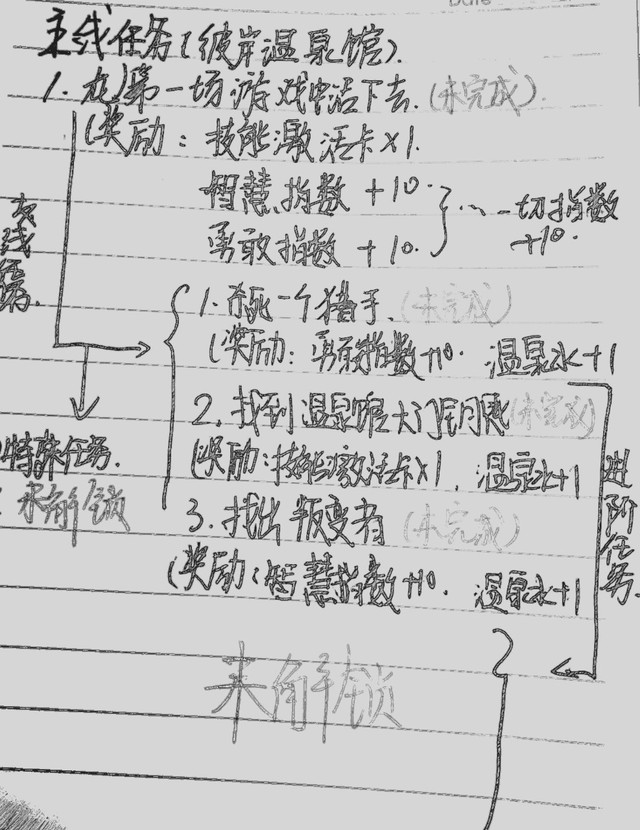 Date
主线任务(彼岸温泉馆).
1. 在第一场游戏中活下去.(未完成).
(奖励:技能激活卡×1.
智慧指数 +10.
一切指数
勇敢指数 +10.
+10.
支线任务.
1.杀死一个猎手.(未完成)
(奖励:勇敢指数+10. 温泉水+1
2.找到温泉馆大门钥匙(未完成)
特殊任务.
(奖励:技能激活卡×1. 温泉水+1
未解锁
3.找出叛变者(未完成)
进阶任务.
(奖励:智慧指数+10. 温泉水+1
未解锁